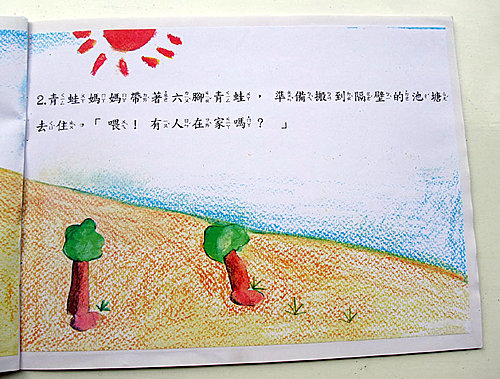 2.青蛙媽媽帶著六腳青蛙，準備搬到隔壁的池塘
去住。「喂！有人在家嗎？」